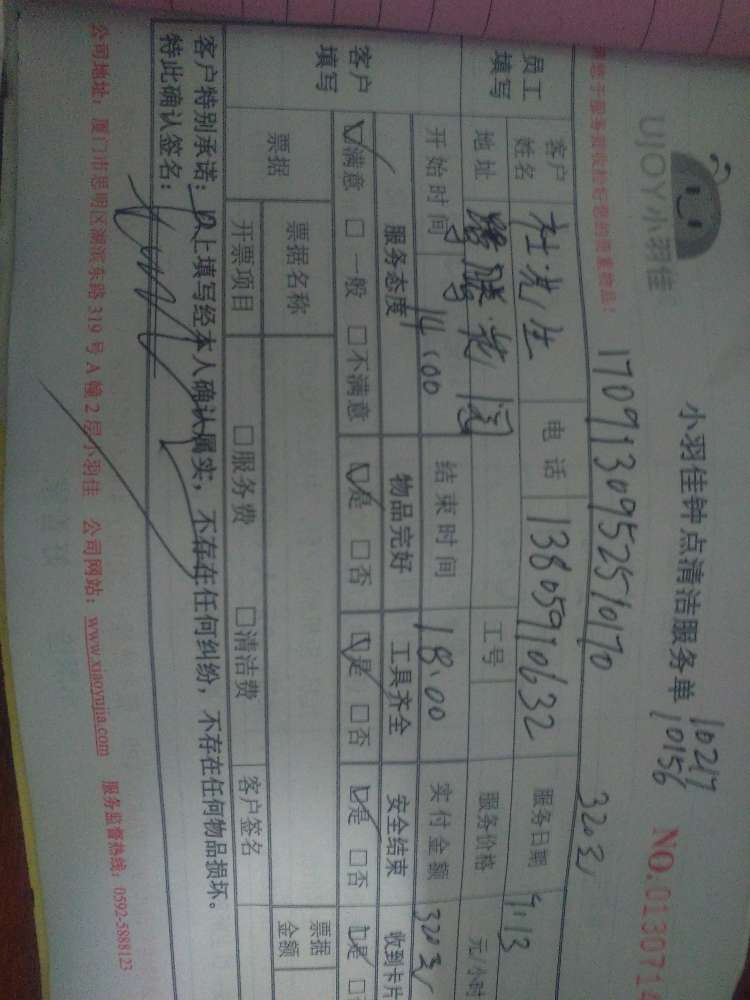 UJOY小羽佳
小羽佳钟点清洁服务单
10217
10156
NO.013071
17091309525710170
320元
员工填写
客户姓名 杜先生 电话 13805910632 服务日期 9.13
地址 工号 服务价格 元/小时
开始时间 14:00 结束时间 18:00 实付金额 320元
客户填写
服务态度 物品完好 工具齐全 安全结束 收到卡片
☑满意 □一般 □不满意 ☑是 □否 ☑是 □否 ☑是 □否 ☑是
票据 票据名称 票据金额
开票项目 □服务费 □清洁费 客户签名
客户特别承诺：以上填写经本人确认属实，不存在任何纠纷，不存在任何物品损坏。
特此确认签名：
公司地址：厦门市思明区湖滨东路 319 号 A 幢 2 层小羽佳 公司网站：www.xiaoyujia.com 服务监督热线：0592-5888123